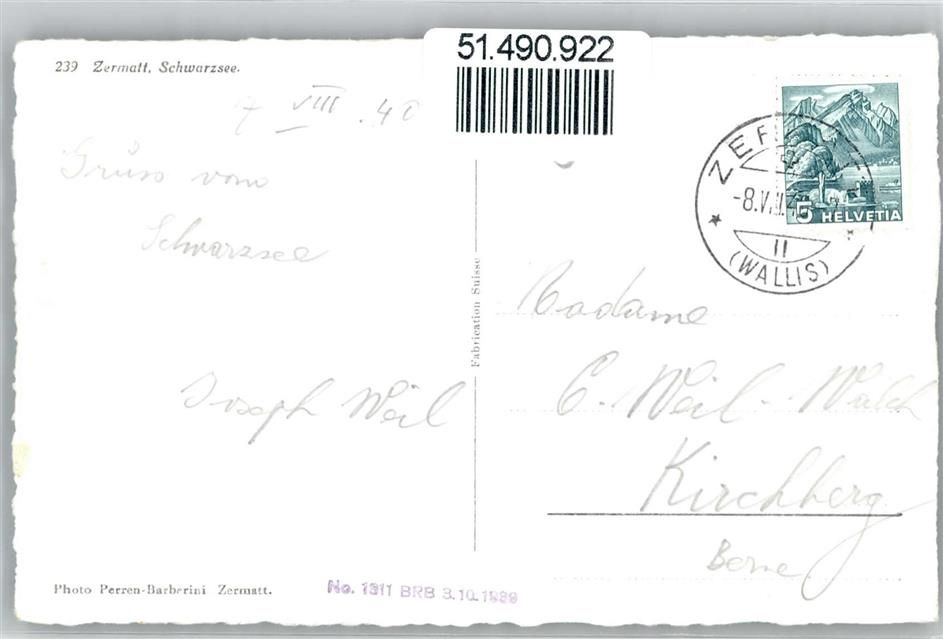 51.490.922
239 Zermatt, Schwarzsee.
7 VIII .40
Grüss vom
Schwarzsee
Joseph Weil
Fabrication Suisse
-8.VIII.4
II
(WALLIS)
5 HELVETIA
Madame
C. Weil - Walch
Kirchberg
Berne
Photo Perren-Barberini Zermatt.
No. 1311 BRB 3.10.1939